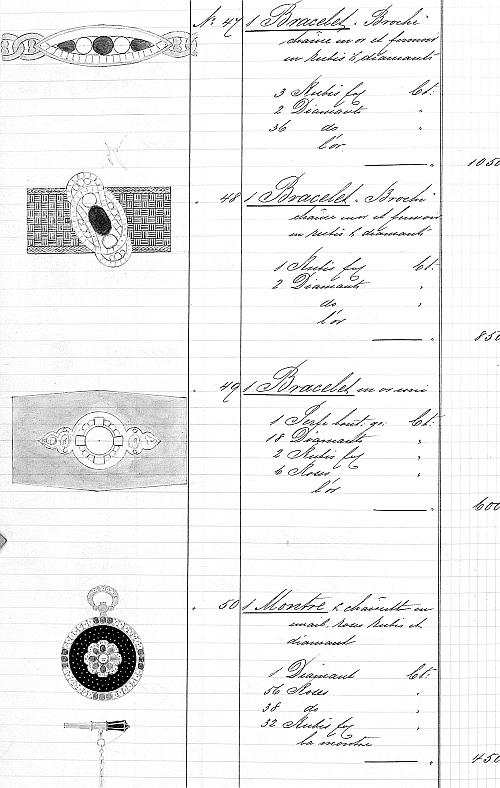 No 47 1 Bracelet - Broche
chaine en or et fermoir
en rubis & diamants
3 Rubis Ct.
2 Diamants "
36 do "
l'or
" 1050
" 48 1 Bracelet - Broche
chaine en or et fermoir
en rubis & diamants
1 Rubis Ct.
2 Diamants "
do "
l'or
" 850
" 49 1 Bracelet en or uni
1 Perle bout. Ct.
18 Diamants "
2 Rubis "
6 Roses "
l'or
" 600
" 50 1 Montre & chainette en
email roses rubis et
diamant
1 Diamant Ct.
56 Roses "
38 do "
32 Rubis "
la montre
" 450